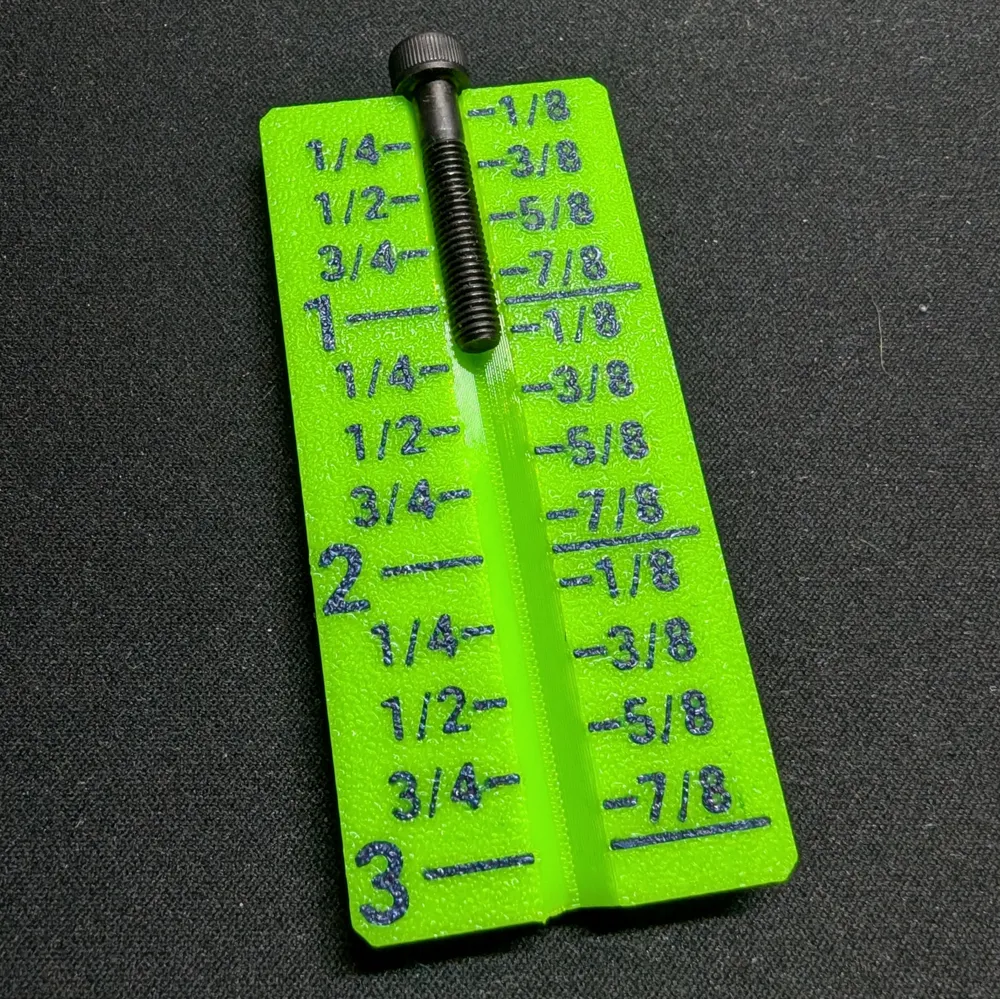 -1/8
1/4-
-3/8
1/2-
-5/8
3/4-
-7/8
1
-1/8
1/4-
-3/8
1/2-
-5/8
3/4-
-7/8
2
-1/8
1/4-
-3/8
1/2-
-5/8
3/4-
-7/8
3